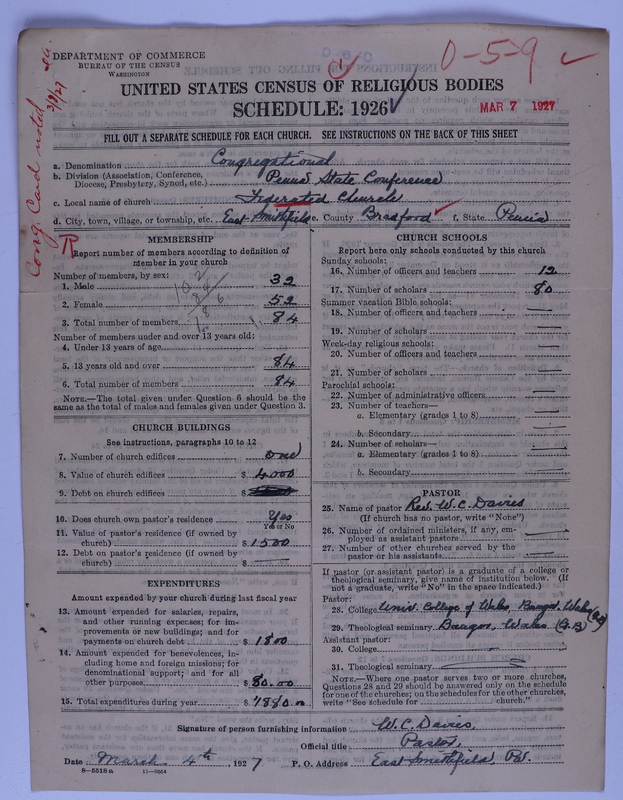 DEPARTMENT OF COMMERCE
BUREAU OF THE CENSUS
WASHINGTON
0-5-9
UNITED STATES CENSUS OF RELIGIOUS BODIES
SCHEDULE: 1926
MAR 7 1927
Cong Card noted 3/9/27
FILL OUT A SEPARATE SCHEDULE FOR EACH CHURCH. SEE INSTRUCTIONS ON THE BACK OF THIS SHEET
a. Denomination Congregational
b. Division (Association, Conference, Diocese, Presbytery, Synod, etc.) Penna State Conference
c. Local name of church Federated Church
d. City, town, village, or township, etc. East Smithfield e. County Bradford f. State Penna
MEMBERSHIP
Report number of members according to definition of member in your church
Number of members, by sex:
1. Male 32
2. Female 52
3. Total number of members 84
Number of members under and over 13 years old:
4. Under 13 years of age
5. 13 years old and over 84
6. Total number of members 84
NOTE.—The total given under Question 6 should be the same as the total of males and females given under Question 3.
CHURCH BUILDINGS
See instructions, paragraphs 10 to 12
7. Number of church edifices one
8. Value of church edifices $ 4000
9. Debt on church edifices $
10. Does church own pastor's residence Yes
Yes or No
11. Value of pastor's residence (if owned by church) $ 1500
12. Debt on pastor's residence (if owned by church) $
EXPENDITURES
Amount expended by your church during last fiscal year
13. Amount expended for salaries, repairs, and other running expenses; for improvements or new buildings; and for payments on church debt $ 1800
14. Amount expended for benevolences, including home and foreign missions; for denominational support; and for all other purposes $ 80.00
15. Total expenditures during year $ 1880.00
CHURCH SCHOOLS
Report here only schools conducted by this church
Sunday schools:
16. Number of officers and teachers 12
17. Number of scholars 80
Summer vacation Bible schools:
18. Number of officers and teachers
19. Number of scholars
Week-day religious schools:
20. Number of officers and teachers
21. Number of scholars
Parochial schools:
22. Number of administrative officers
23. Number of teachers—
a. Elementary (grades 1 to 8)
b. Secondary
24. Number of scholars—
a. Elementary (grades 1 to 8)
b. Secondary
PASTOR
25. Name of pastor Rev. W. C. Davies
(If church has no pastor, write "None")
26. Number of ordained ministers, if any, employed as assistant pastors
27. Number of other churches served by the pastor or his assistants
If pastor (or assistant pastor) is a graduate of a college or theological seminary, give name of institution below. (If not a graduate, write "No" in the space indicated.)
Pastor:
28. College Univ. College of Wales, Bangor, Wales
29. Theological seminary Bangor, Wales (G.B)
Assistant pastor:
30. College
31. Theological seminary
NOTE.—Where one pastor serves two or more churches, Questions 28 and 29 should be answered only on the schedule for one of the churches; on the schedules for the other churches, write "See schedule for church."
Signature of person furnishing information W. C. Davies
Official title Pastor
Date March 4th, 1927 P. O. Address East Smithfield, Pa.
8-5518a 11-9864